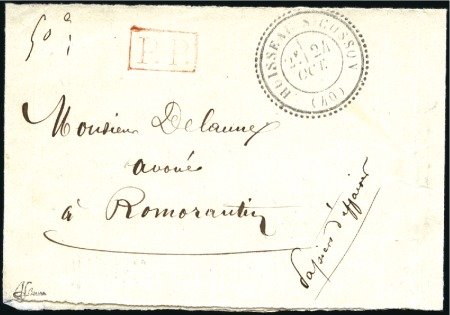 50c
P.P.
HUISSEAU S. COSSON
2E 24
OCT
(40)
Monsieur Delaune
avoué
à Romorantin
Papiers d'affaires